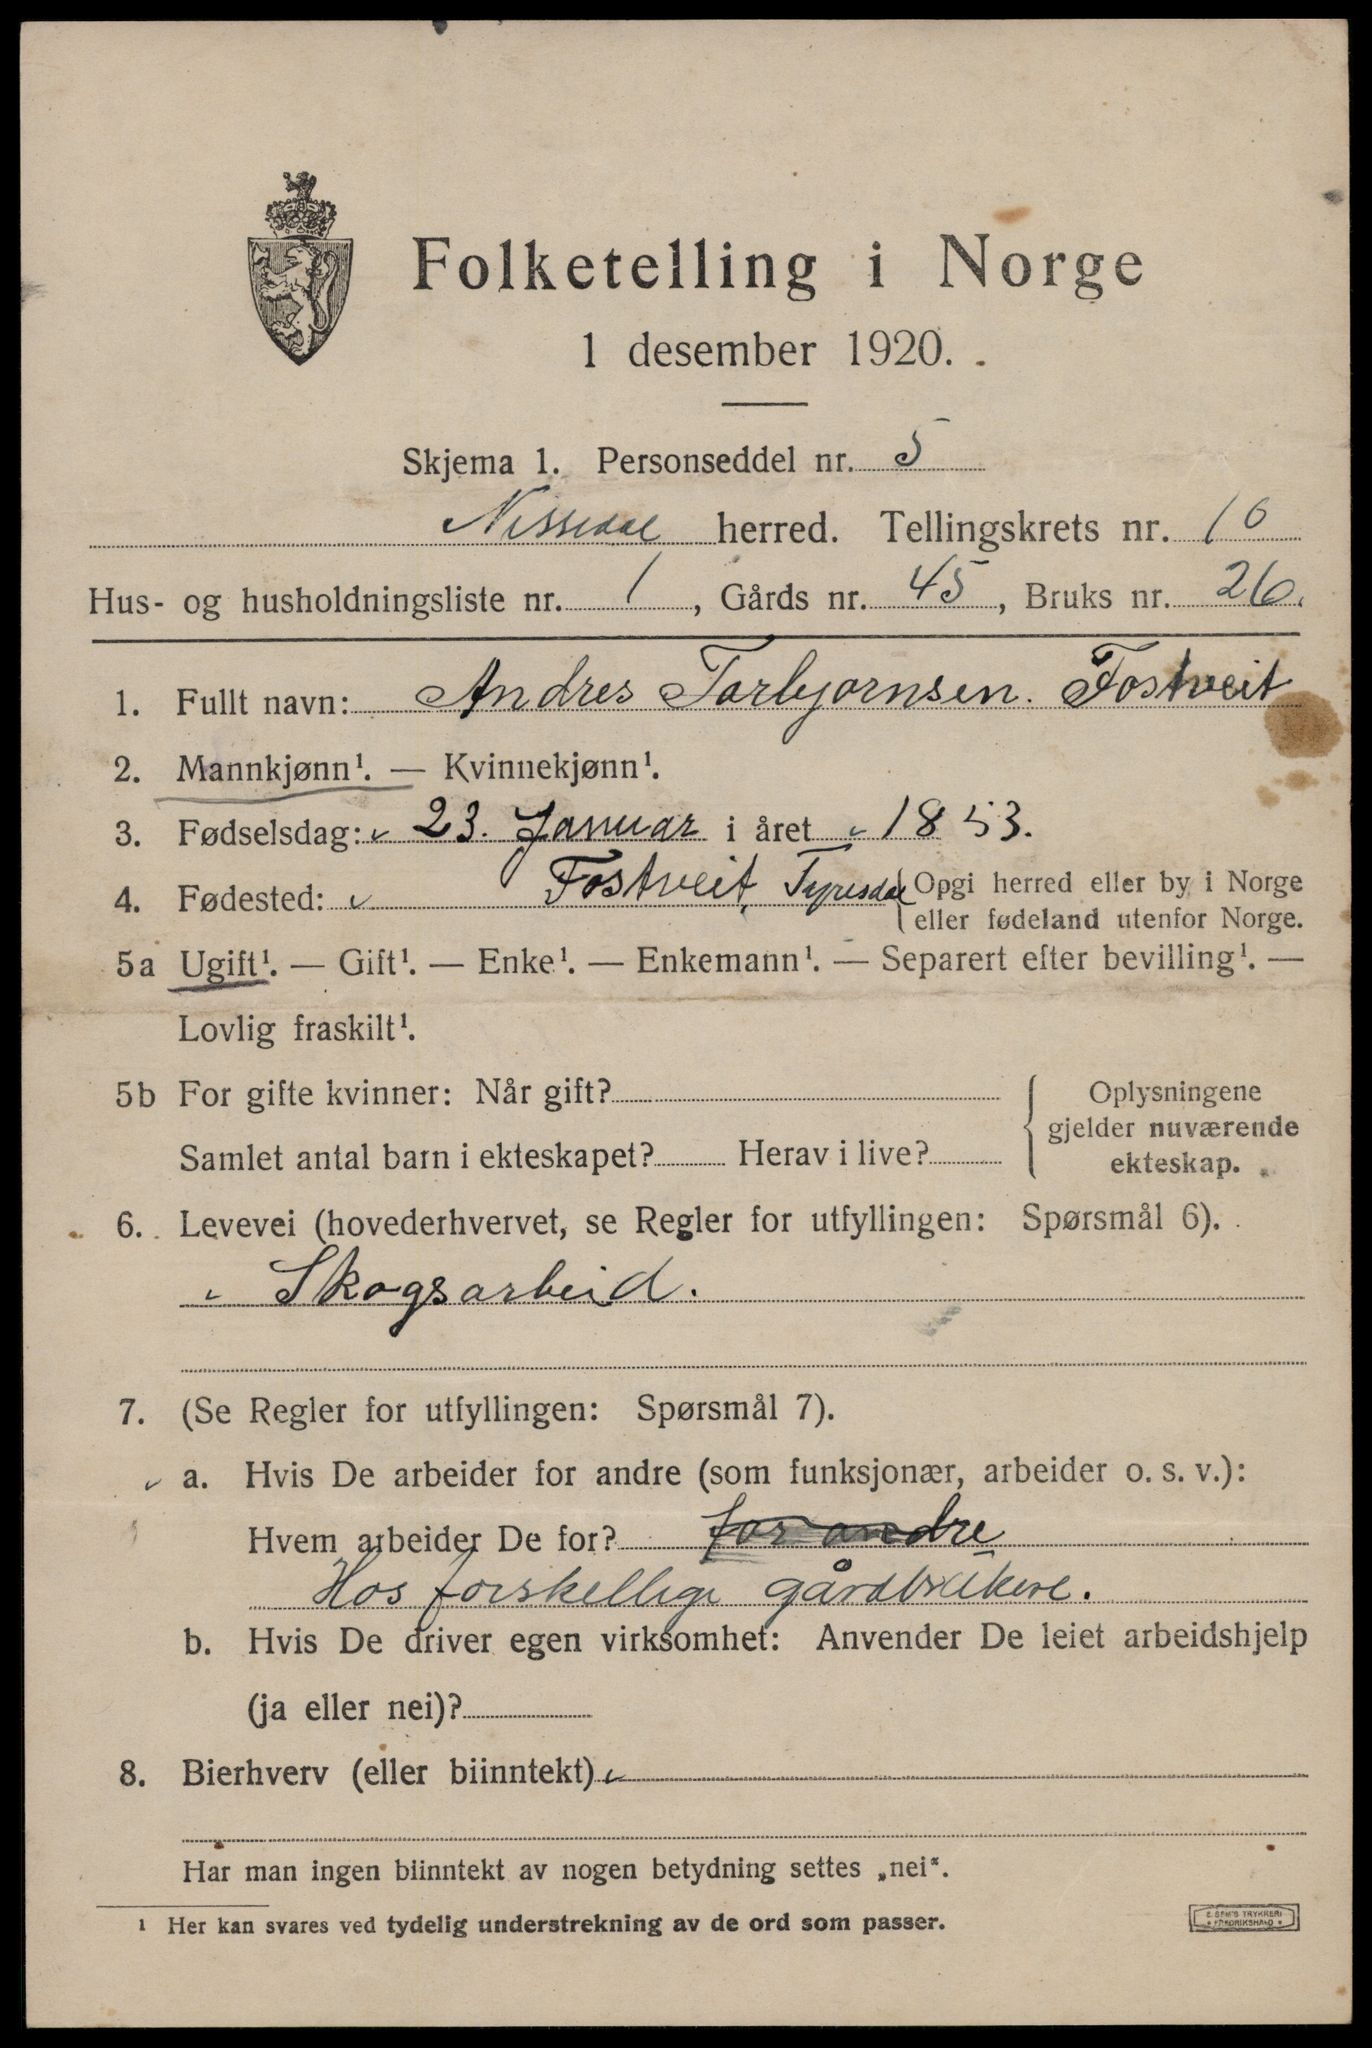 Folketelling i Norge
1 desember 1920.
Skjema 1. Personseddel nr. 5
Nissedal herred. Tellingskrets nr. 10
Hus- og husholdningsliste nr. 1, Gårds nr. 45, Bruks nr. 26.
1. Fullt navn: Andres Torbjornsen. Fostveit
2. Mannkjønn¹. — Kvinnekjønn¹.
3. Fødselsdag: 23. Januar i året 1853.
4. Fødested: Fostveit, Tyresdal Opgi herred eller by i Norge
eller fødeland utenfor Norge.
5a Ugift¹. — Gift¹. — Enke¹. — Enkemann¹. — Separert efter bevilling¹. —
Lovlig fraskilt¹.
5b For gifte kvinner: Når gift?
Samlet antal barn i ekteskapet? Herav i live?
Oplysningene
gjelder nuværende
ekteskap.
6. Levevei (hovederhvervet, se Regler for utfyllingen: Spørsmål 6).
Skogsarbeid.
7. (Se Regler for utfyllingen: Spørsmål 7).
a. Hvis De arbeider for andre (som funksjonær, arbeider o. s. v.):
Hvem arbeider De for? for andre
Hos forskellige gårdbrukere.
b. Hvis De driver egen virksomhet: Anvender De leiet arbeidshjelp
(ja eller nei)?
8. Bierhverv (eller biinntekt)
Har man ingen biinntekt av nogen betydning settes „nei".
¹ Her kan svares ved tydelig understrekning av de ord som passer.
E. SEM'S TRYKKERI
FREDRIKSHALD